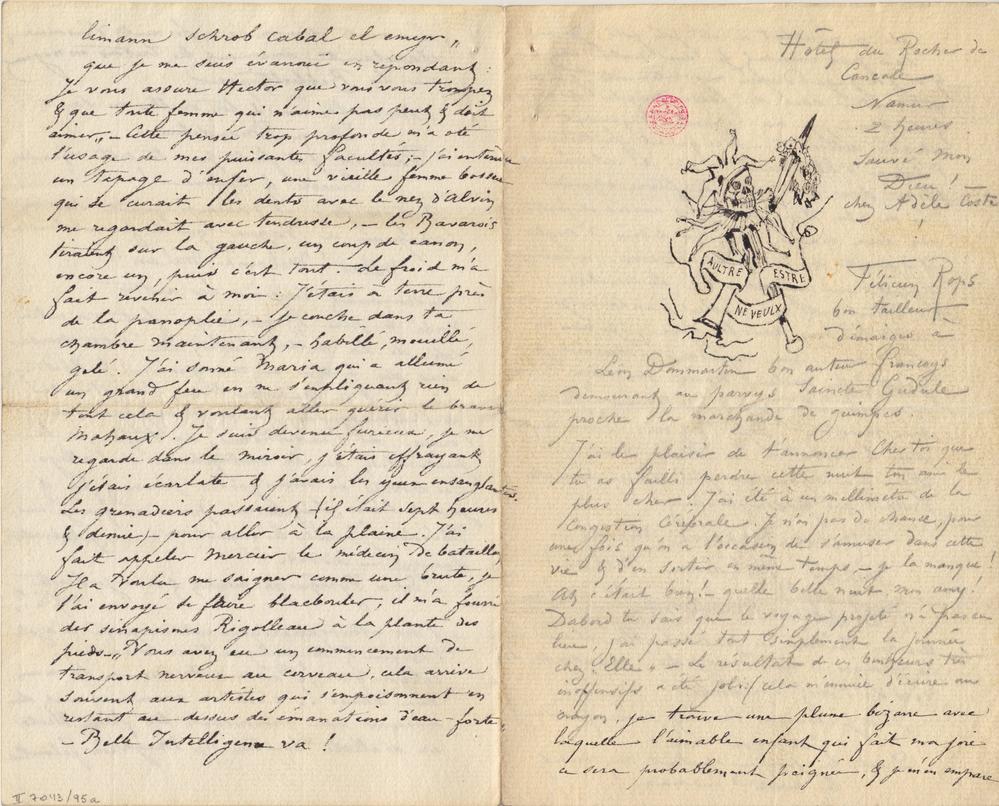 Hôtel du Rocher de
Cancale
Namur
2 heures
Sauvé mon
Dieu !
chez Adèle Coste
!
AULTRE ESTRE
NE VEULX
Félicien Rops
bon tailleur
d'imaiges à
Léon Dommartin bon auteur françoys
demourant au parvys Saincte Gudule
proche la marchande de guimpes.
J'ai le plaisir de t'annoncer Cher toi que
tu as failli perdre cette nuit ton ami le
plus cher. J'ai été à un millimètre de la
Congestion Cérébrale. Je n'ai pas de chance, pour
une fois qu'on a l'occasion de s'amuser dans cette
vie & d'en sortir en même temps – je la manque !
Ah c'était bien ! quelle belle nuit mon ami !
D'abord tu sais que le voyage projeté n'a pas eu
lieu, j'ai passé tout simplement la journée
chez "Elle" – Le résultat de ces bonheurs très
inoffensifs a été joli ! (cela m'ennuie d'écrire au
crayon, je trouve une plume bizarre avec
laquelle l'aimable enfant qui fait ma joie
a sera probablement peignée, & je m'en empare
limann schrob cabal el emyr „
que je me suis évanoui en répondant :
Je vous assure Hector que vous vous trompez
& que toute femme qui n'aime pas peut & doit
aimer „ – Cette pensée trop profonde m'a ôté
l'usage de mes puissantes facultés, – j'ai entendu
un tapage d'enfer, une vieille femme bossue
qui se curait les dents avec le nez d'Alvin
me regardait avec tendresse, – les Bavarois
tiraient sur la gauche, un coup de canon,
encore un, puis c'est tout. Le froid m'a
fait revenir à moi : J'étais à terre près
de la panoplie, – Je couche dans ta
chambre maintenant, – habillé, mouillé,
gelé. J'ai sonné Maria qui a allumé
un grand feu en ne s'expliquant rien de
tout cela & voulant aller quérir le brave
Mahaux. Je suis devenu furieux, je me
regarde dans le miroir, j'étais effrayant,
j'étais écarlate & j'avais les yeux ensanglantés.
Les grenadiers passaient – (il était sept heures
& demie) – pour aller à la plaine. J'ai
fait appeler Mercier le médecin de bataillon
Il a voulu me saigner comme une brute, je
l'ai envoyé se faire blackbouler, il m'a fourré
des sinapismes Rigolleau à la plante des
pieds – „Vous avez eu un commencement de
transport nerveux au cerveau, cela arrive
souvent aux artistes qui s'empoisonnent en
restant au dessus des émanations d'eau-forte"
– Belle Intelligence va !
II 7043/95a